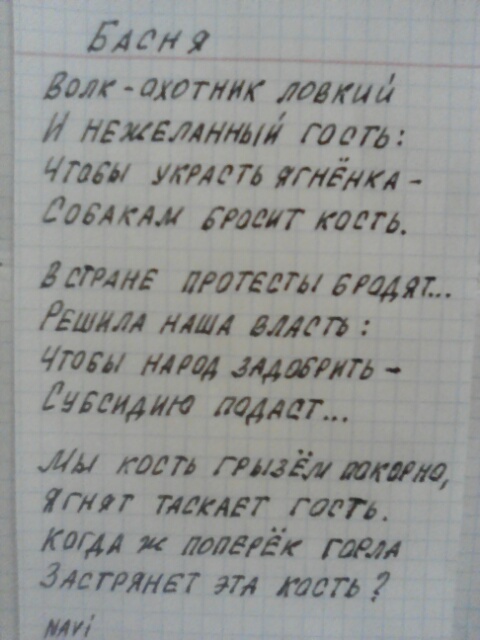 Басня
Волк-охотник ловкий
И нежеланный гость:
Чтобы украсть ягнёнка –
Собакам бросит кость.
В стране протесты бродят...
Решила наша власть:
Чтобы народ задобрить –
Субсидию подаст...
Мы кость грызём покорно,
Ягнят таскает гость.
Когда ж поперёк горла
Застрянет эта кость?
NAVi